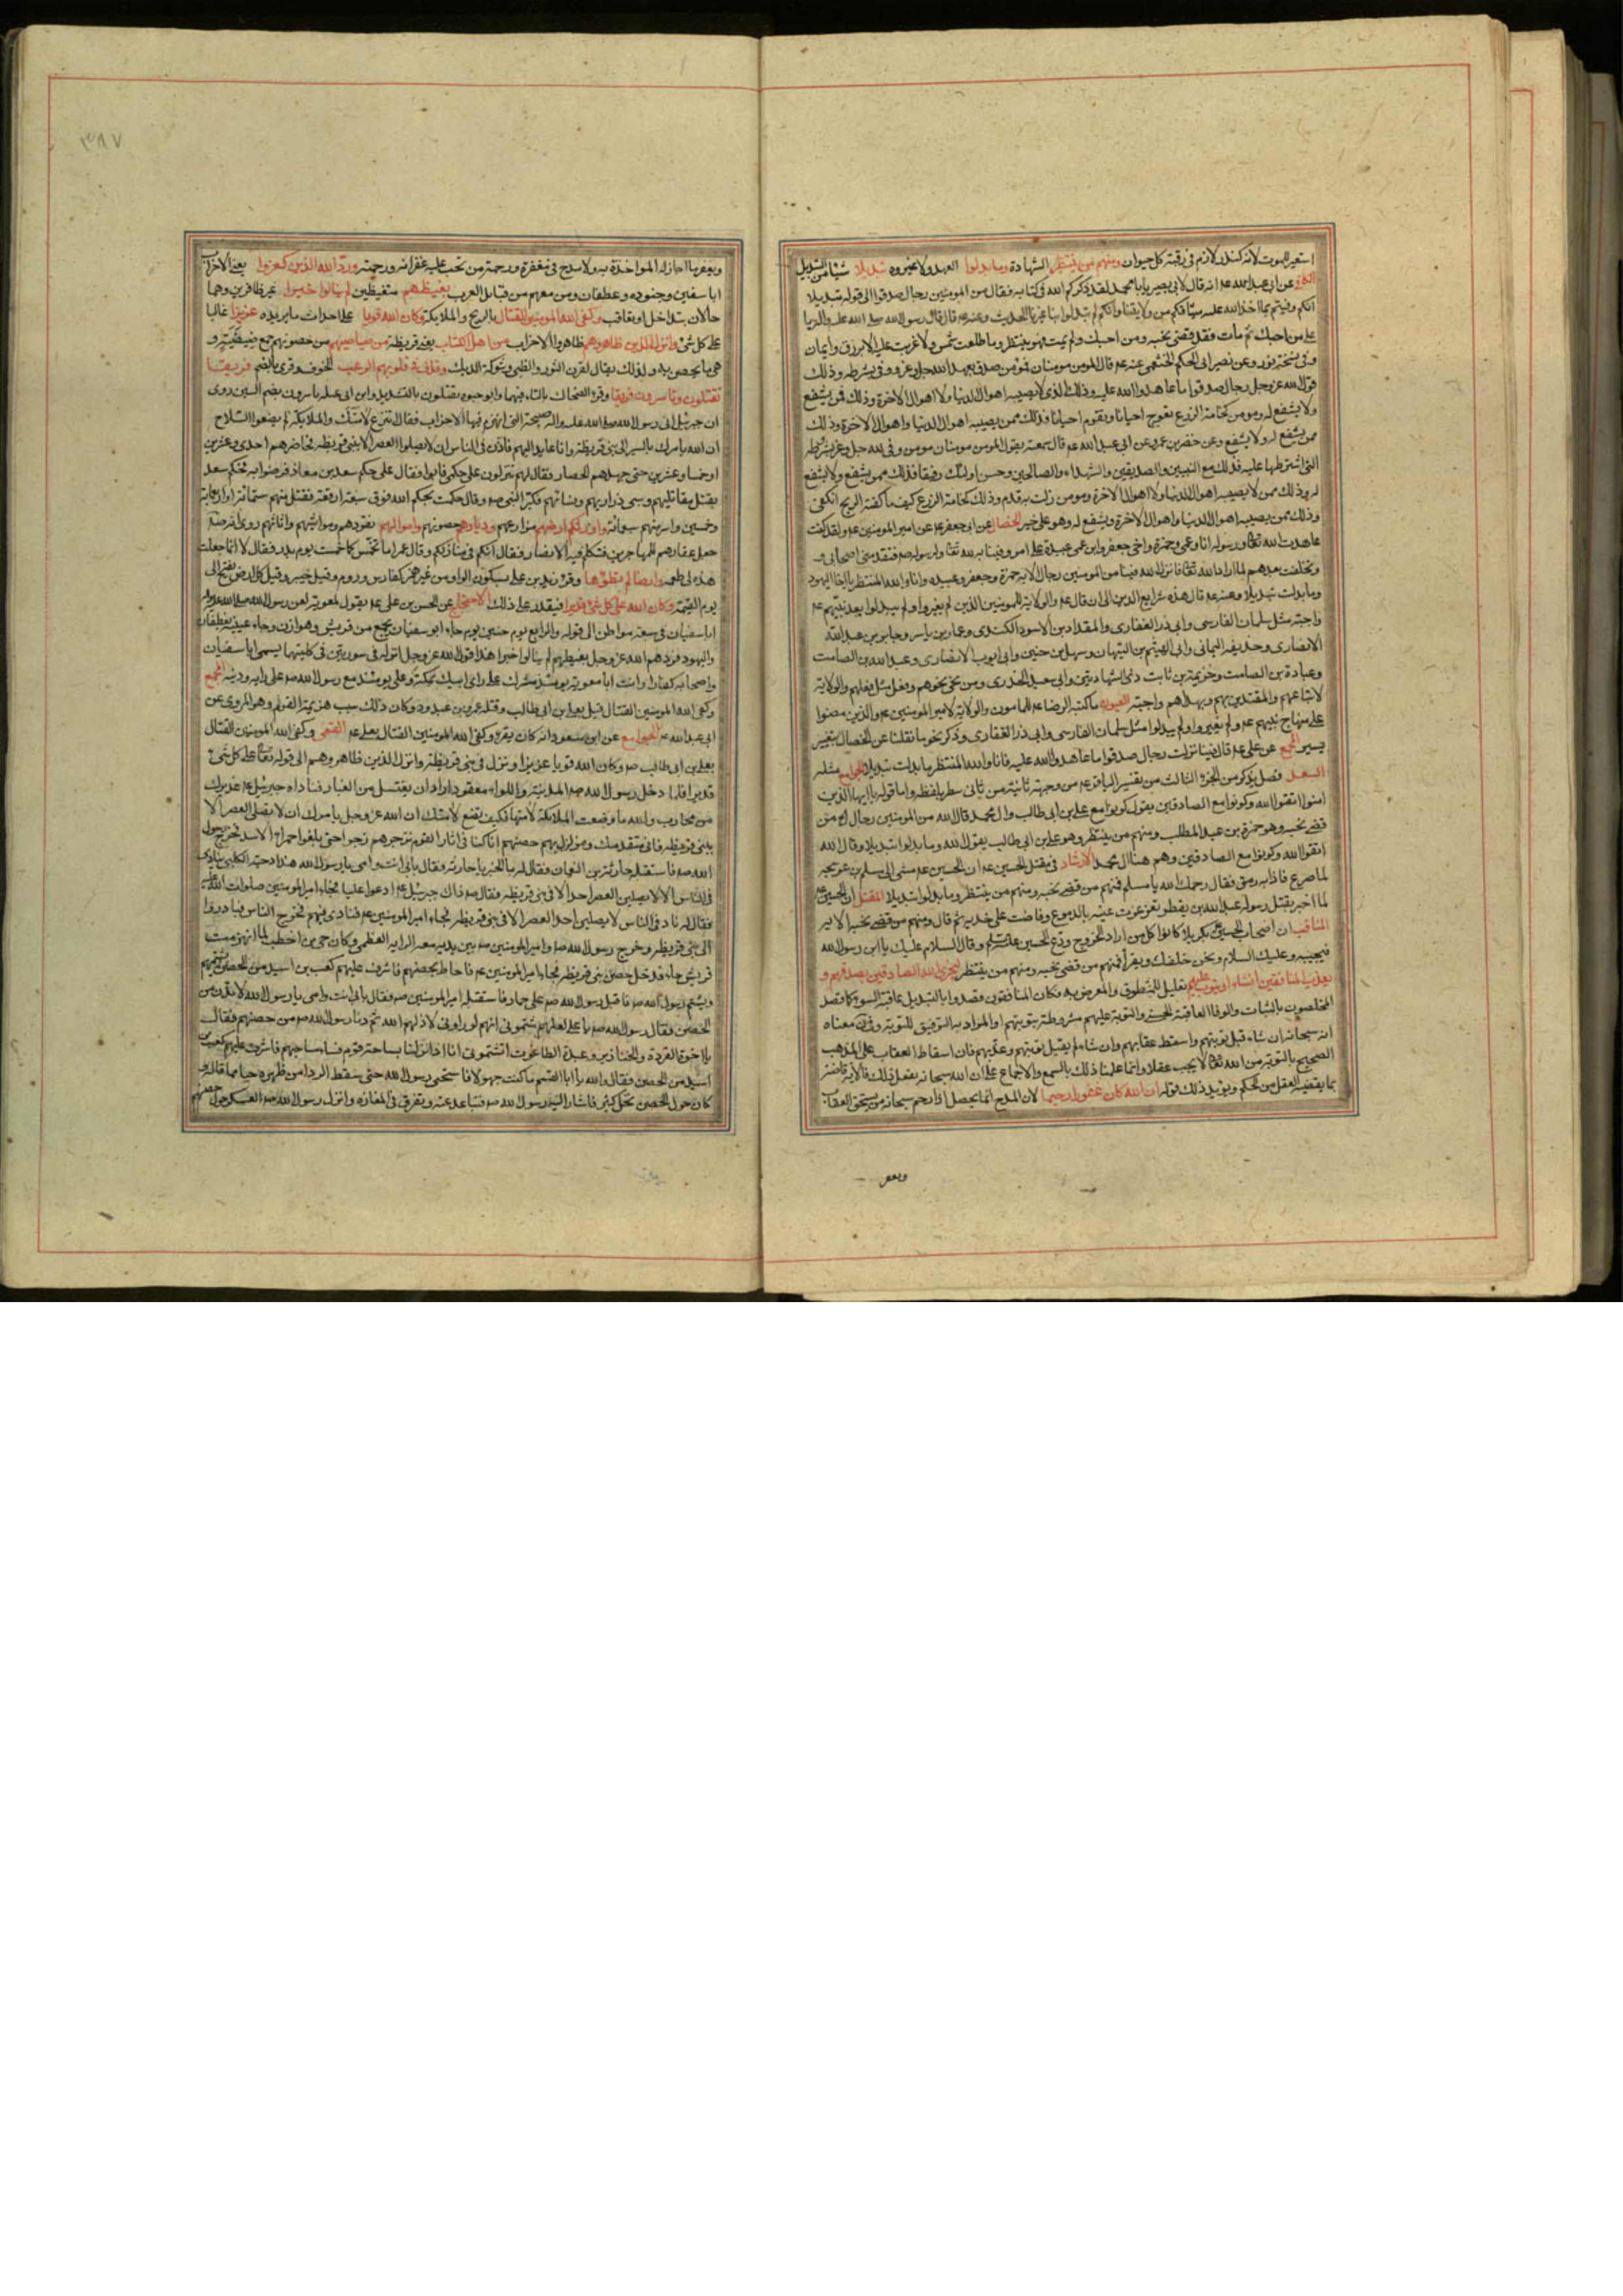 استعير للموت لانه كنذر لازم في رقبة كل حيوان ومنهم من ينتظر الشهادة وما بدلوا العهد ولا غيروه تبديلا شيئا من التبديل
عن ابي عبد الله عم انه قال لابي بصير يا با محمد لقد ذكركم الله في كتابه فقال من المومنين رجال صدقوا الى قوله تبديلا
انكم وفيتم بما اخذ الله عليه ميثاقكم من ولايتنا وانكم لم تبدلوا بنا غيرنا الحديث وعنه عم قال قال رسول الله صلى الله عليه واله يا
علي من احبك ثم مات فقد قضى نحبه ومن احبك ولم يمت فهو ينتظر وما طلعت شمس ولا غربت عليه الا برزق وايمان
وفي نسخة نور وعن نصر ابي الحكم الخثعمي عنه عم قال المومن مومنان فمومن صدق بعهد الله جل وعز ووفى بشرطه وذلك
قول الله عز وجل رجال صدقوا ما عاهدوا الله عليه وذلك الذي لا يصيبه اهوال الدنيا ولا اهوال الاخرة وذلك ممن يشفع
ولا يشفع له ومومن كخامة الزرع تعوج احيانا وتقوم احيانا فذلك ممن يصيبه اهوال الدنيا واهوال الاخرة وذلك
ممن يشفع له ولا يشفع وعن خضر بن عمرو عن ابي عبد الله عم قال سمعته يقول المومن مومنان مومن وفى لله جل وعز بشرطه
التي اشترطها عليه فذلك مع النبيين والصديقين والشهداء والصالحين وحسن اولئك رفيقا فذلك ممن يشفع ولا يشفع
له وذلك ممن لا يصيبه اهوال الدنيا ولا اهوال الاخرة ومومن زلت به قدم وذلك كخامة الزرع كيف ما كفته الريح انكفى
وذلك ممن يصيبه اهوال الدنيا واهوال الاخرة ويشفع له وهو على خير الخصال عن ابي جعفر عم عن امير المومنين عم ولقد كنت
عاهدت الله تعالى ورسوله انا وعمي حمزة واخي جعفر وابن عمي عبيدة على امر وفينا به لله تعالى ولرسوله صم فتقدمني اصحابي و
تخلفت بعدهم لما اراد الله تعالى فانزل الله فينا من المومنين رجال الاية حمزة وجعفر وعبيدة وانا والله المنتظر يا اخا اليهود
وما بدلت تبديلا وعنه عم قال هذه شرايع الدين الى ان قال عم والولاية للمومنين الذين لم يغيروا ولم يبدلوا بعد نبيهم عم
واجبة مثل سلمان الفارسي وابي ذر الغفاري والمقداد بن الاسود الكندي وعمار بن ياسر وجابر بن عبد الله
الانصاري وحذيفة اليماني وابي الهيثم بن التيهان وسهل بن حنيف وابي ايوب الانصاري وعبد الله بن الصامت
وعبادة بن الصامت وخزيمة بن ثابت ذي الشهادتين وابي سعيد الخدري ومن نحى نحوهم وفعل مثل فعلهم والولاية
لاتباعهم والمقتدين بهم وبهداهم واجبة العيون ما كتبه الرضا عم للمامون والولاية لامير المومنين عم والذين مضوا
على منهاج نبيهم عم ولم يغيروا ولم يبدلوا مثل سلمان الفارسي وابي ذر الغفاري وذكر نحو ما نقلنا عن الخصال بتغيير
يسير المجمع عن علي عم قال فينا نزلت رجال صدقوا ما عاهدوا الله عليه فانا والله المنتظر ما بدلت تبديلا الجوامع مثله
امنوا اتقوا الله وكونوا مع الصادقين يقول كونوا مع علي بن ابي طالب وال محمد قال الله من المومنين رجال الخ فمن
قضى نحبه وهو حمزة بن عبد المطلب ومنهم من ينتظر وهو علي بن ابي طالب يقول الله وما بدلوا تبديلا وقال الله
اتقوا الله وكونوا مع الصادقين وهم هنا ال محمد الارشاد في مقتل الحسين عم ان الحسين عم مشى الى مسلم بن عوسجة
لما صرع فاذا به رمق فقال رحمك الله يا مسلم فمنهم من قضى نحبه ومنهم من ينتظر وما بدلوا تبديلا المقتل ان الحسين عم
لما اخبر بقتل رسوله عبد الله بن يقطر تغرغرت عينه بالدموع وفاضت على خديه ثم قال ومنهم من قضى نحبه الاية
المناقب ان اصحاب الحسين بكربلا كانوا كل من اراد الخروج ودع الحسين عم وقال السلام عليك يا ابن رسول الله
فيجيبه وعليك السلام ونحن خلفك ويقرأ فمنهم من قضى نحبه ومنهم من ينتظر ليجزي الله الصادقين بصدقهم و
يعذب المنافقين ان شاء او يتوب عليهم تعليل للمنطوق والمعرض به فكان المنافقون قصدوا بالتبديل عاقبة السوء كما قصد
المخلصون بالثبات والوفا العاقبة الحسنى والتوبة عليهم مشروطة بتوبتهم او المراد به التوفيق للتوبة وقيل معناه
انه سبحانه ان شاء قبل توبتهم واسقط عقابهم وان شاء لم يقبل توبتهم وعذبهم فان اسقاط العقاب على المذهب
الصحيح بالتوبة من الله تعالى لا يجب عقلا وانما علمنا ذلك بالسمع والاجماع على ان الله سبحانه يفعل ذلك فالاية قاضية
بما يقتضيه العقل من الحكم ويويد ذلك قوله ان الله كان غفورا رحيما لان المدح انما يحصل اذا رحم سبحانه من يستحق العقاب
ويغفر
٣٨٧
ويغفر ما جاز له المواخذة به ولا مدح في مغفرة ورحمة من تجب عليه غفرانه ورحمته ورد الله الذين كفروا يعني الاحزاب
ابا سفين وجنوده وغطفان ومن معهم من قبائل العرب بغيظهم متغيظين لم ينالوا خيرا غير ظافرين وهما
حالان بتداخل او تعاقب وكفى الله المومنين القتال بالريح والملايكة وكان الله قويا على احداث ما يريده عزيزا غالبا
على كل شيء وانزل الذين ظاهروهم ظاهروا الاحزاب من اهل الكتاب يعني قريظة من صياصيهم من حصونهم جمع صيصية و
هي ما يحصن به ولذلك يقال لقرن الثور والظبي وشوكة الديك وقذف في قلوبهم الرعب الخوف وقرئ بالضم فريقا
تقتلون وتاسرون فريقا وقرئ بضم السين روى
ان جبرئيل اتى رسول الله صلى الله عليه واله صبيحة التي انهزم فيها الاحزاب فقال اتنزع لامتك والملايكة لم يضعوا السلاح
ان الله يامرك بالسير الى بني قريظة وانا عامد اليهم فاذن في الناس ان لا يصلوا العصر الا ببني قريظة فحاصرهم احدى وعشرين
او خمسا وعشرين حتى جهدهم الحصار فقال لهم تنزلون على حكمي فابوا فقال على حكم سعد بن معاذ فرضوا به فحكم سعد
بقتل مقاتليهم وسبي ذراريهم ونسائهم فكبر النبي صم وقال حكمت بحكم الله فوق سبعة ارقعة فقتل منهم ستمائة او اربعمائة
وخمسين واسر منهم سبعمائة واورثكم ارضهم مزارعهم وديارهم حصونهم واموالهم نقودهم ومواشيهم واثاثهم روى انه صم
جعل عقارهم للمهاجرين فتكلم فيه الانصار فقال انكم في منازلكم وقال عمر اما تخمس كما خمست يوم بدر فقال لا انما جعلت
هذه لي طعمة وارضا لم تطؤها كفارس وروم وقيل خيبر وقيل كل ارض تفتح الى
يوم القيمة وكان الله على كل شيء قديرا فيقدر على ذلك الاحتجاج عن الحسن بن علي عم يقول لمعوية لعن رسول الله صلى الله عليه واله
ابا سفيان في سبعة مواطن الى قوله والرابع يوم حنين يوم جاء ابو سفيان بجمع من قريش وهوازن وجاء عيينة بغطفان
واليهود فردهم الله عز وجل بغيظهم لم ينالوا خيرا هذا قول الله عز وجل انزله في سورتين في كلتيهما يسمى ابا سفيان
واصحابه كفارا وانت يا معوية يومئذ مشرك على راي ابيك بمكة وعلي يومئذ مع رسول الله صم على رايه ودينه المجمع
وكفى الله المومنين القتال قيل بعلي بن ابي طالب وقتله عمرو بن عبد ود وكان ذلك سبب هزيمة القوم وهو المروي عن
ابي عبد الله عم الجوامع عن ابن مسعود انه كان يقرء وكفى الله المومنين القتال بعلي عم القمي وكفى الله المومنين القتال
بعلي بن ابي طالب صم وكان الله قويا عزيزا ونزل في بني قريظة وانزل الذين ظاهروهم الى قوله تعالى على كل شيء
قديرا فلما دخل رسول الله صم المدينة واللواء معقود اراد ان يغتسل من الغبار فناداه جبرئيل عم عذيرك
من محارب والله ما وضعت الملايكة لامتها فكيف تضع لامتك ان الله عز وجل يامرك ان لا تصلي العصر الا
ببني قريظة فاني متقدمك ومزلزل بهم حصنهم انا كنا في اثار القوم نزجرهم زجرا حتى بلغوا حمراء الاسد فخرج رسول
الله صم فاستقبله حارثة بن النعمان فقال له ما الخبر يا حارثة فقال بابي انت وامي يا رسول الله هذا دحية الكلبي ينادي
في الناس الا لا يصلين العصر احد الا في بني قريظة فقال صم ذاك جبرئيل عم ادعوا عليا فجاء امير المومنين صلوات الله عليه
فقال له ناد في الناس لا يصلين احد العصر الا في بني قريظة فجاء امير المومنين عم فنادى فيهم فخرج الناس فبادروا
الى بني قريظة وخرج رسول الله صم وامير المومنين صم بين يديه معه الراية العظمى وكان حي بن اخطب لما انهزمت
قريش جاء فدخل حصن بني قريظة فجاء امير المومنين عم فاحاط بحصنهم فاشرف عليهم كعب بن اسيد من الحصن يشتمهم
ويشتم رسول الله صم فاقبل رسول الله صم على حمار فاستقبله امير المومنين صم فقال بابي انت وامي يا رسول الله لا تدن من
الحصن فقال رسول الله صم يا علي لعلهم شتموني انهم لو راوني لاذلهم الله ثم دنا رسول الله صم من حصنهم فقال
يا اخوة القردة والخنازير وعبدة الطاغوت اتشتموني انا اذا نزلنا بساحة قوم فساء صباحهم فاشرف عليهم كعب بن
اسيد من الحصن فقال والله يا ابا القسم ما كنت جهولا فاستحيى رسول الله حتى سقط الردا من ظهره حيا مما قاله و
كان حول الحصن نخل كثير فاشار اليه رسول الله صم فتباعد عنه وتفرق في المفازة وانزل رسول الله صم العسكر حول حصنهم